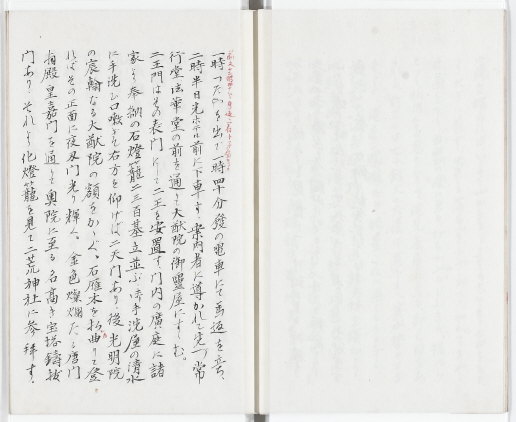 一時つたやを出で一時四十分發の電車にて馬返を立ち
二時半日光ホテル前に下車す。案内者に導かれて先づ常
行堂法華堂の前を通りて大猷院の御靈屋にすゝむ。
二王門はその表門にして二王を安置す。門内の廣庭に諸
家より奉納の石燈籠二三百基立並ぶ。御手洗屋の清水
に手洗ひ口嗽ぎて右方を仰げば二天門あり後光明院
の宸翰なる大猷院の額をかゝぐ。石雁木を折曲りて登
ればその正面に夜叉門光り輝く。金色燦爛たる唐門
拜殿皇嘉門を過ぎて奥院に至る名高き宝塔鑄拔
門あり。それより化燈籠を見て二荒神社に參拜す。